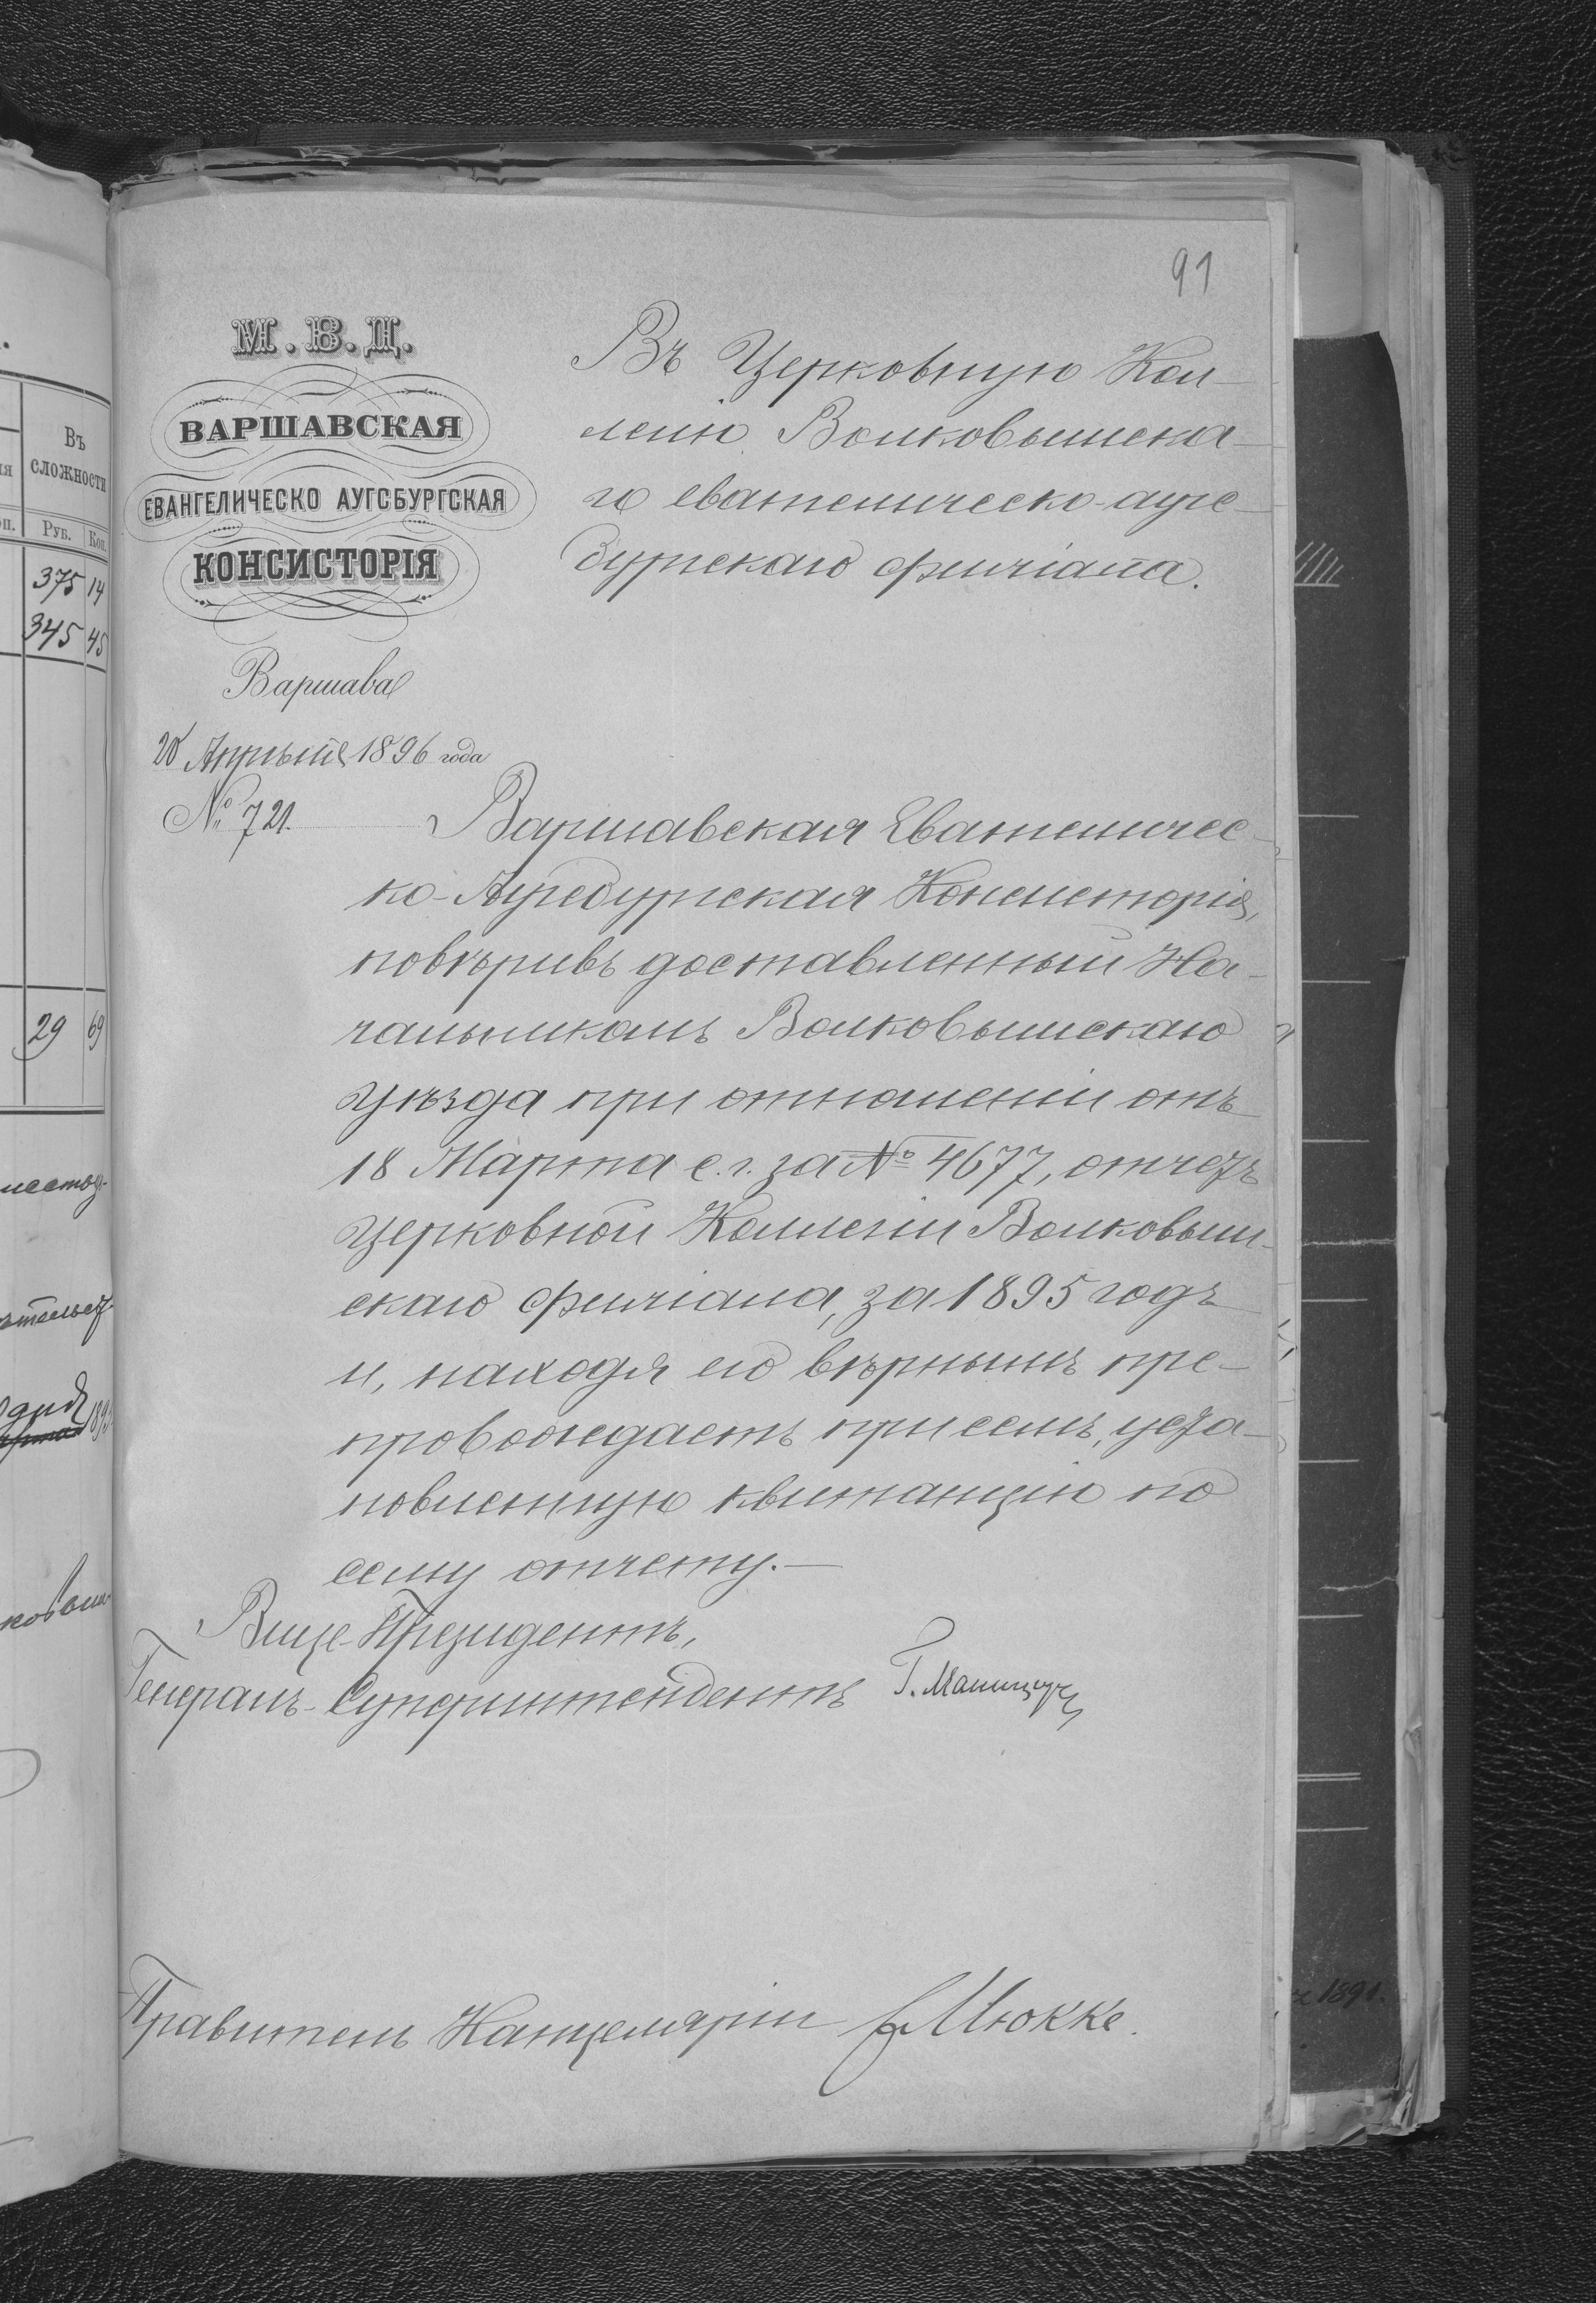 91
М.В.Д.
ВАРШАВСКАЯ
ЕВАНГЕЛИЧЕСКО АУГСБУРГСКАЯ
КОНСИСТОРІЯ
Варшава
20 Апрѣля 1896 года
№ 721.
Въ Церковную Кол-
легію Волковышска-
го евангелическо-аугс-
бургскаго филіала.
Варшавская Евангеличес-
ко-Аугсбургская Консисторія,
повѣривъ доставленный На-
чальникомъ Волковышскаго
Уѣзда при отношеніи отъ
18 Марта с.г. за № 4677, отчетъ
Церковной Коллегіи Волковыш-
скаго филіала, за 1895 годъ
и, находя его вѣрнымъ пре-
провождаетъ при семъ, уста-
новленную квитанцію по
сему отчету.—
Вице-Президентъ,
Генералъ-Суперинтендентъ
Правитель Канцеляріи Мюкке.
Въ
сложности
Руб. Коп.
375 14
345 45
29 69
1891.